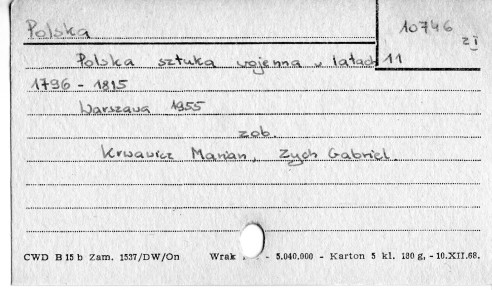 Polska
10746
z I
11
Polska sztuka wojenna w latach
1796 - 1815
Warszawa 1955
zob.
Krwawicz Marian, Zych Gabriel.
CWD B 15 b Zam. 1537/DW/On Wrak - 5.040.000 - Karton 5 kl. 180 g, - 10.XII.68.